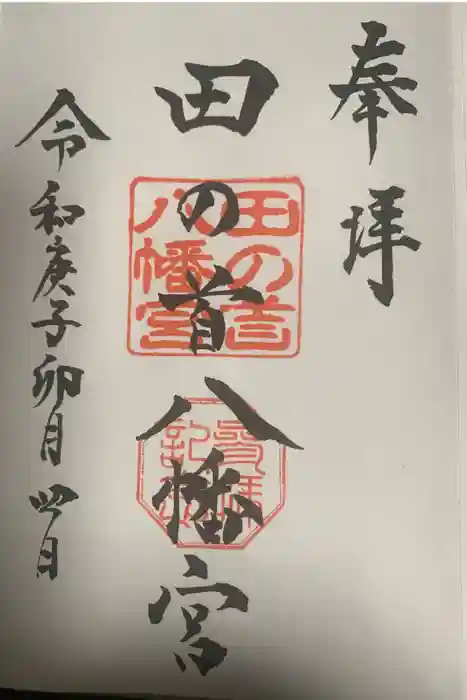 奉拝
田の首八幡宮
田の首
八幡宮
令和庚子卯月四日